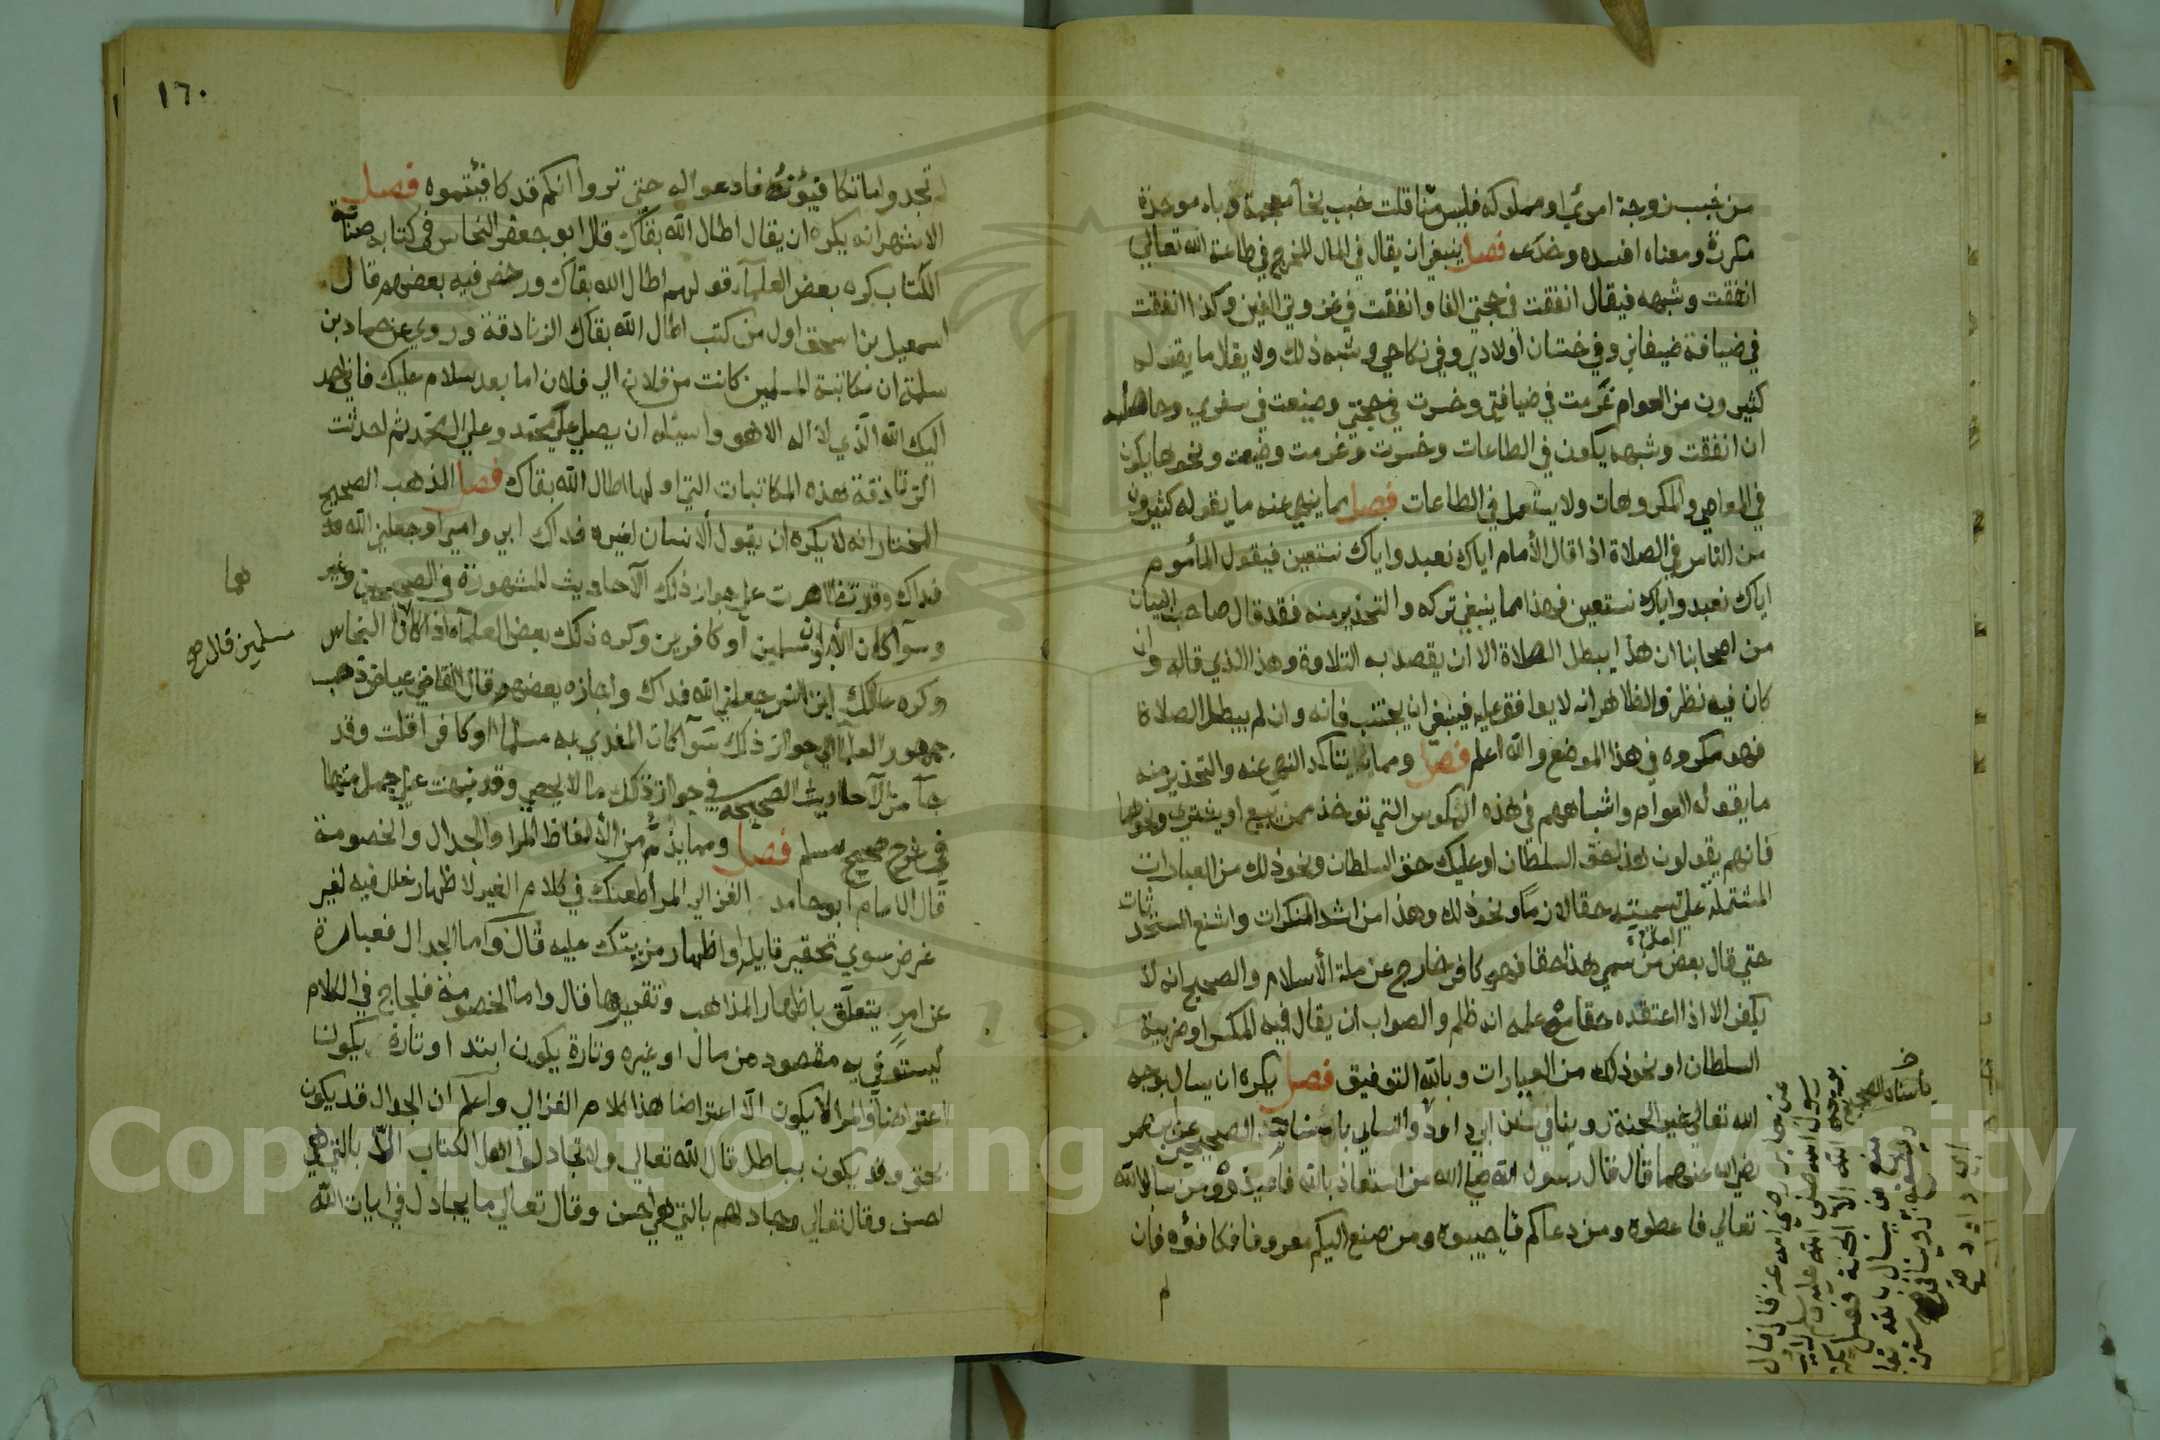 من خبب زوجة امرئ او مملوكه فليس منا قلت خبب بخآ معجمة وباء موحدة
مكررة ومعناه افسده وخدعه فصل ينبغي ان يقال في المال المخرج في طاعة الله تعالي
انفقت وشبهه فيقال انفقت في حجتي الفا وانفقت في غزوتي الفين وكذا انفقت
في ضيافة ضيفاني وفي ختان اولادي وفي نكاحي وشبه ذلك ولا يقل ما يقوله
كثيرون من العوام غرمت في ضيافتي وخسرت في حجتي وضيعت في سفري وحاصله
ان انفقت وشبهه يكون في الطاعات وخسرت وغرمت وضيعت ونحوها يكون
في المعاصي والمكروهات ولا يستعمل في الطاعات فصل مما ينهي عنه ما يقوله كثيرون
من الناس في الصلاة اذا قال الأمام اياك نعبد واياك نستعين فيقول المأموم
اياك نعبد واياك نستعين فهذا مما ينبغي تركه والتحذير منه فقد قال صاحب البيان
من اصحابنا ان هذا يبطل الصلاة الا ان يقصد به التلاوة وهذا الذي قاله وان
كان فيه نظر والظاهر انه لا يوافق عليه فينبغي ان يجتنب فانه وان لم يبطل الصلاة
فهو مكروه في هذا الموضع والله اعلم فصل ومما يتاكد النهي عنه والتحذير منه
ما يقوله العوام واشباههم في هذه المكوس التي توخذ ممن يبيع او يشتري ونحوهما
فانهم يقولون هذا حق السلطان او عليك حق السلطان ونحو ذلك من العبارات
المشتملة علي تسميته حقا لازما ونحو ذلك وهذا من اشد المنكرات واشنع المستحدثات
حتي قال بعض العلماء من سمي هذا حقا فهو كافر خارج عن ملة الأسلام والصحيح انه لا
يكفر الا اذا اعتقده حقا مع علمه انه ظلم والصواب ان يقال فيه المكس او ضريبة
السلطان او نحو ذلك من العبارات وبالله التوفيق فصل يكره ان يسال بوجه
الله تعالي غير الجنة روينا في سنن ابي داود والنسايي باسانيد الصحيحين عن ابن عمر
رضي الله عنهما قال قال رسول الله صلي الله من استعاذ بالله فاعيذوه ومن سال بالله
تعالي فاعطوه ومن دعاكم فاجيبوه ومن صنع اليكم معروفا فكافئوه فان
لم
عن جابر رضي الله عنه قال قال
رسول الله صلي الله عليه وسلم لا يسال
بوجه الله الا الجنة فصل يكره
منع من سال بالله تعا
وتشفع به روينا في سنن
ابي داود صح
١٦٠
لم تجدوا ما تكافيؤنه فادعوا له حتي تروا انكم قد كافيتموه فصل
الاشهر انه يكره ان يقال اطال الله بقاك قال ابو جعفر النحاس في كتابه صناعة
الكتاب كره بعض العلمآء قولهم اطال الله بقاك ورخص فيه بعضهم قال
اسمعيل بن اسحق اول من كتب اطال الله بقاك الزنادقة وروي عن حماد بن
سلمة ان مكاتبة المسلمين كانت من فلان الي فلان اما بعد سلام عليك فاني احمد
اليك الله الذي لا اله الا هو واسئله ان يصلي علي محمد وعلي ال محمد ثم احدثت
الزنادقة هذه المكاتبات التي اولها اطال الله بقاك فصل المذهب الصحيح
المختار انه لا يكره ان يقول الانسان لغيره فداك ابي وامي او جعلني الله
فداك وقد تظاهرت علي جواز ذلك الآحاديث المشهورة في الصحيحين وغيرهما
وسوآ كان الأبوان مسلمين او كافرين وكره ذلك بعض العلمآء اذا كانا مسلمين قال النحاس
وكره مالك ابن انس جعلني الله فداك واجازه بعضهم قال القاضي عياض ذهب
جمهور العلمآ الي جواز ذلك سوآ كان المفدي به مسلما او كافرا قلت وقد
جآ من الآحاديث الصحيحة في جواز ذلك ما لا يحصي وقد نبهت علي جمل منها
في شرح صحيح مسلم فصل ومما يذم من الألفاظ المرا والجدال والخصومة
قال الامام ابو حامد الغزالي المرا طعنك في كلام الغير لاظهار خلل فيه لغير
غرض سوي تحقير قايله واظهار مزيتك عليه قال واما الجدال فعبارة
عن امر يتعلق باظهار المذاهب وتقريرها قال واما الخصومة فلجاج في الكلام
ليستوفي به مقصود من مال او غيره وتارة يكون ابتدا وتارة يكون
اعتراضا والمرا لا يكون الا اعتراضا هذا كلام الغزالي واعلم ان الجدال قد يكون
بحق وقد يكون بباطل قال الله تعالي ولا تجادلوا اهل الكتاب الا بالتي هي
احسن وقال تعالي وجادلهم بالتي هي احسن وقال تعالي ما يجادل في ايات الله
هما
مسلمين قال صح